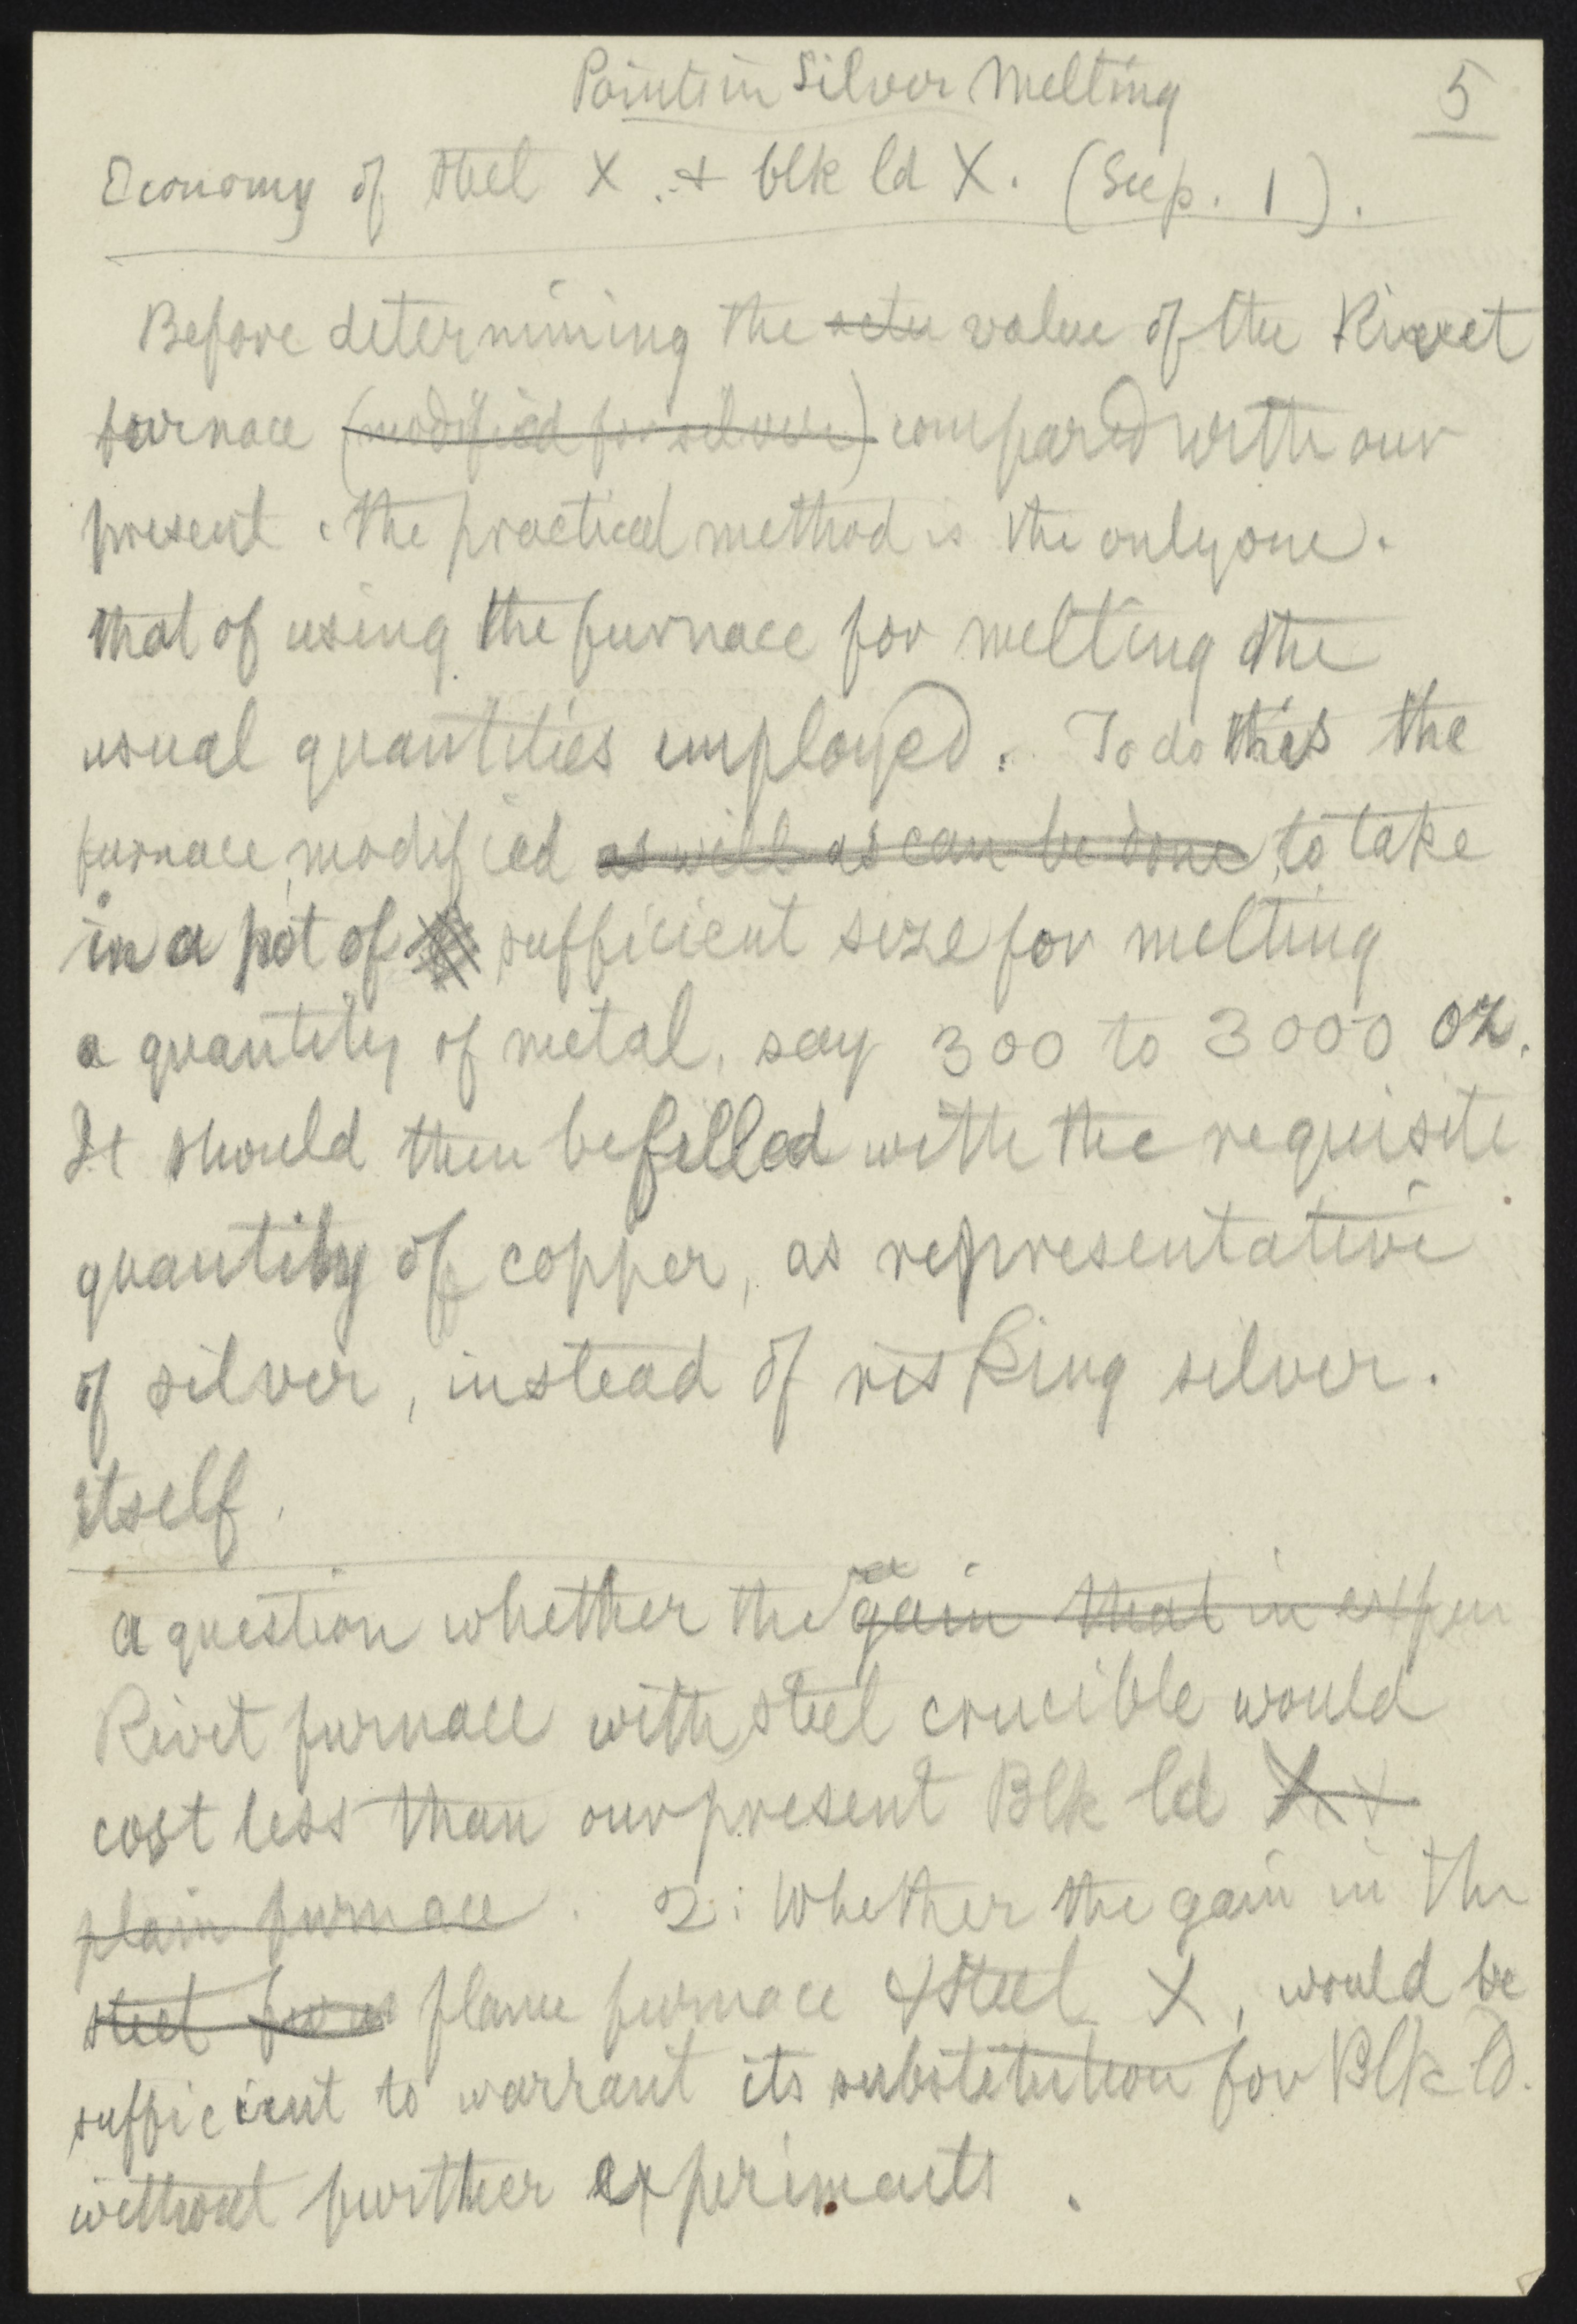 Points in Silver Melting 5
Economy of steel X . + blk ld X. (Sup. 1).
Before determining the value of the Rivet
furnace (modified for silver) compared with our
present. The practical method is the only one.
that of using the furnace for melting the
usual quantities employed. To do this the
furnace, modified as well as can be done, to take
in a pot of sufficient size for melting
a quantity of metal, say 300 to 3000 oz.
It should then be filled with the requisite
quantity of copper, as representative
of silver, instead of risking silver.
itself.
a question whether the gain that in expen
Rivet furnace with steel crucible would
cost less than our present Blk ld X X
plain furnace. 2: Whether the gain in the
steel furnace plane furnace & steel X, would be
sufficient to warrant its substitution for Blk ld.
without further experiments.